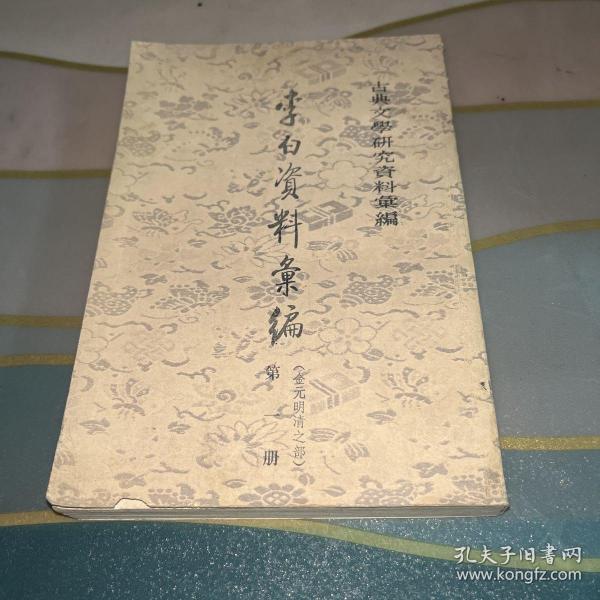 古典文學研究資料彙編
李白資料彙編
(金元明清之部)
第一册
孔夫子旧书网
www.kongfz.com